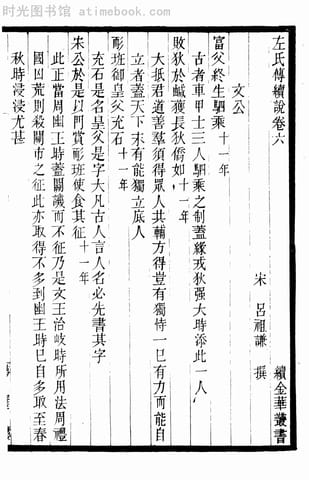 时光图书馆 — atimebook.com
左氏傳續說卷六　續金華叢書
宋　呂祖謙　撰
文公
富父終生駟乘十一年
古者車甲士三人駟乘之制蓋緣戎狄强大時添此一人
敗狄於鹹獲長狄僑如十一年
大抵君道善羣須得眾人共輔方得豈有獨恃一己有力而能自
立者蓋天下未有能獨立底人
耏班御皇父充石十一年
充石是名皇父是字大凡古人言人名必先書其字
宋公於是以門賞耏班使食其征十一年
此正當周幽王時蓋關譏而不征乃是文王治岐時所用法周禮
國凶荒則殺關市之征此亦取得不多到幽王時已自多取至春
秋時浸浸尤甚